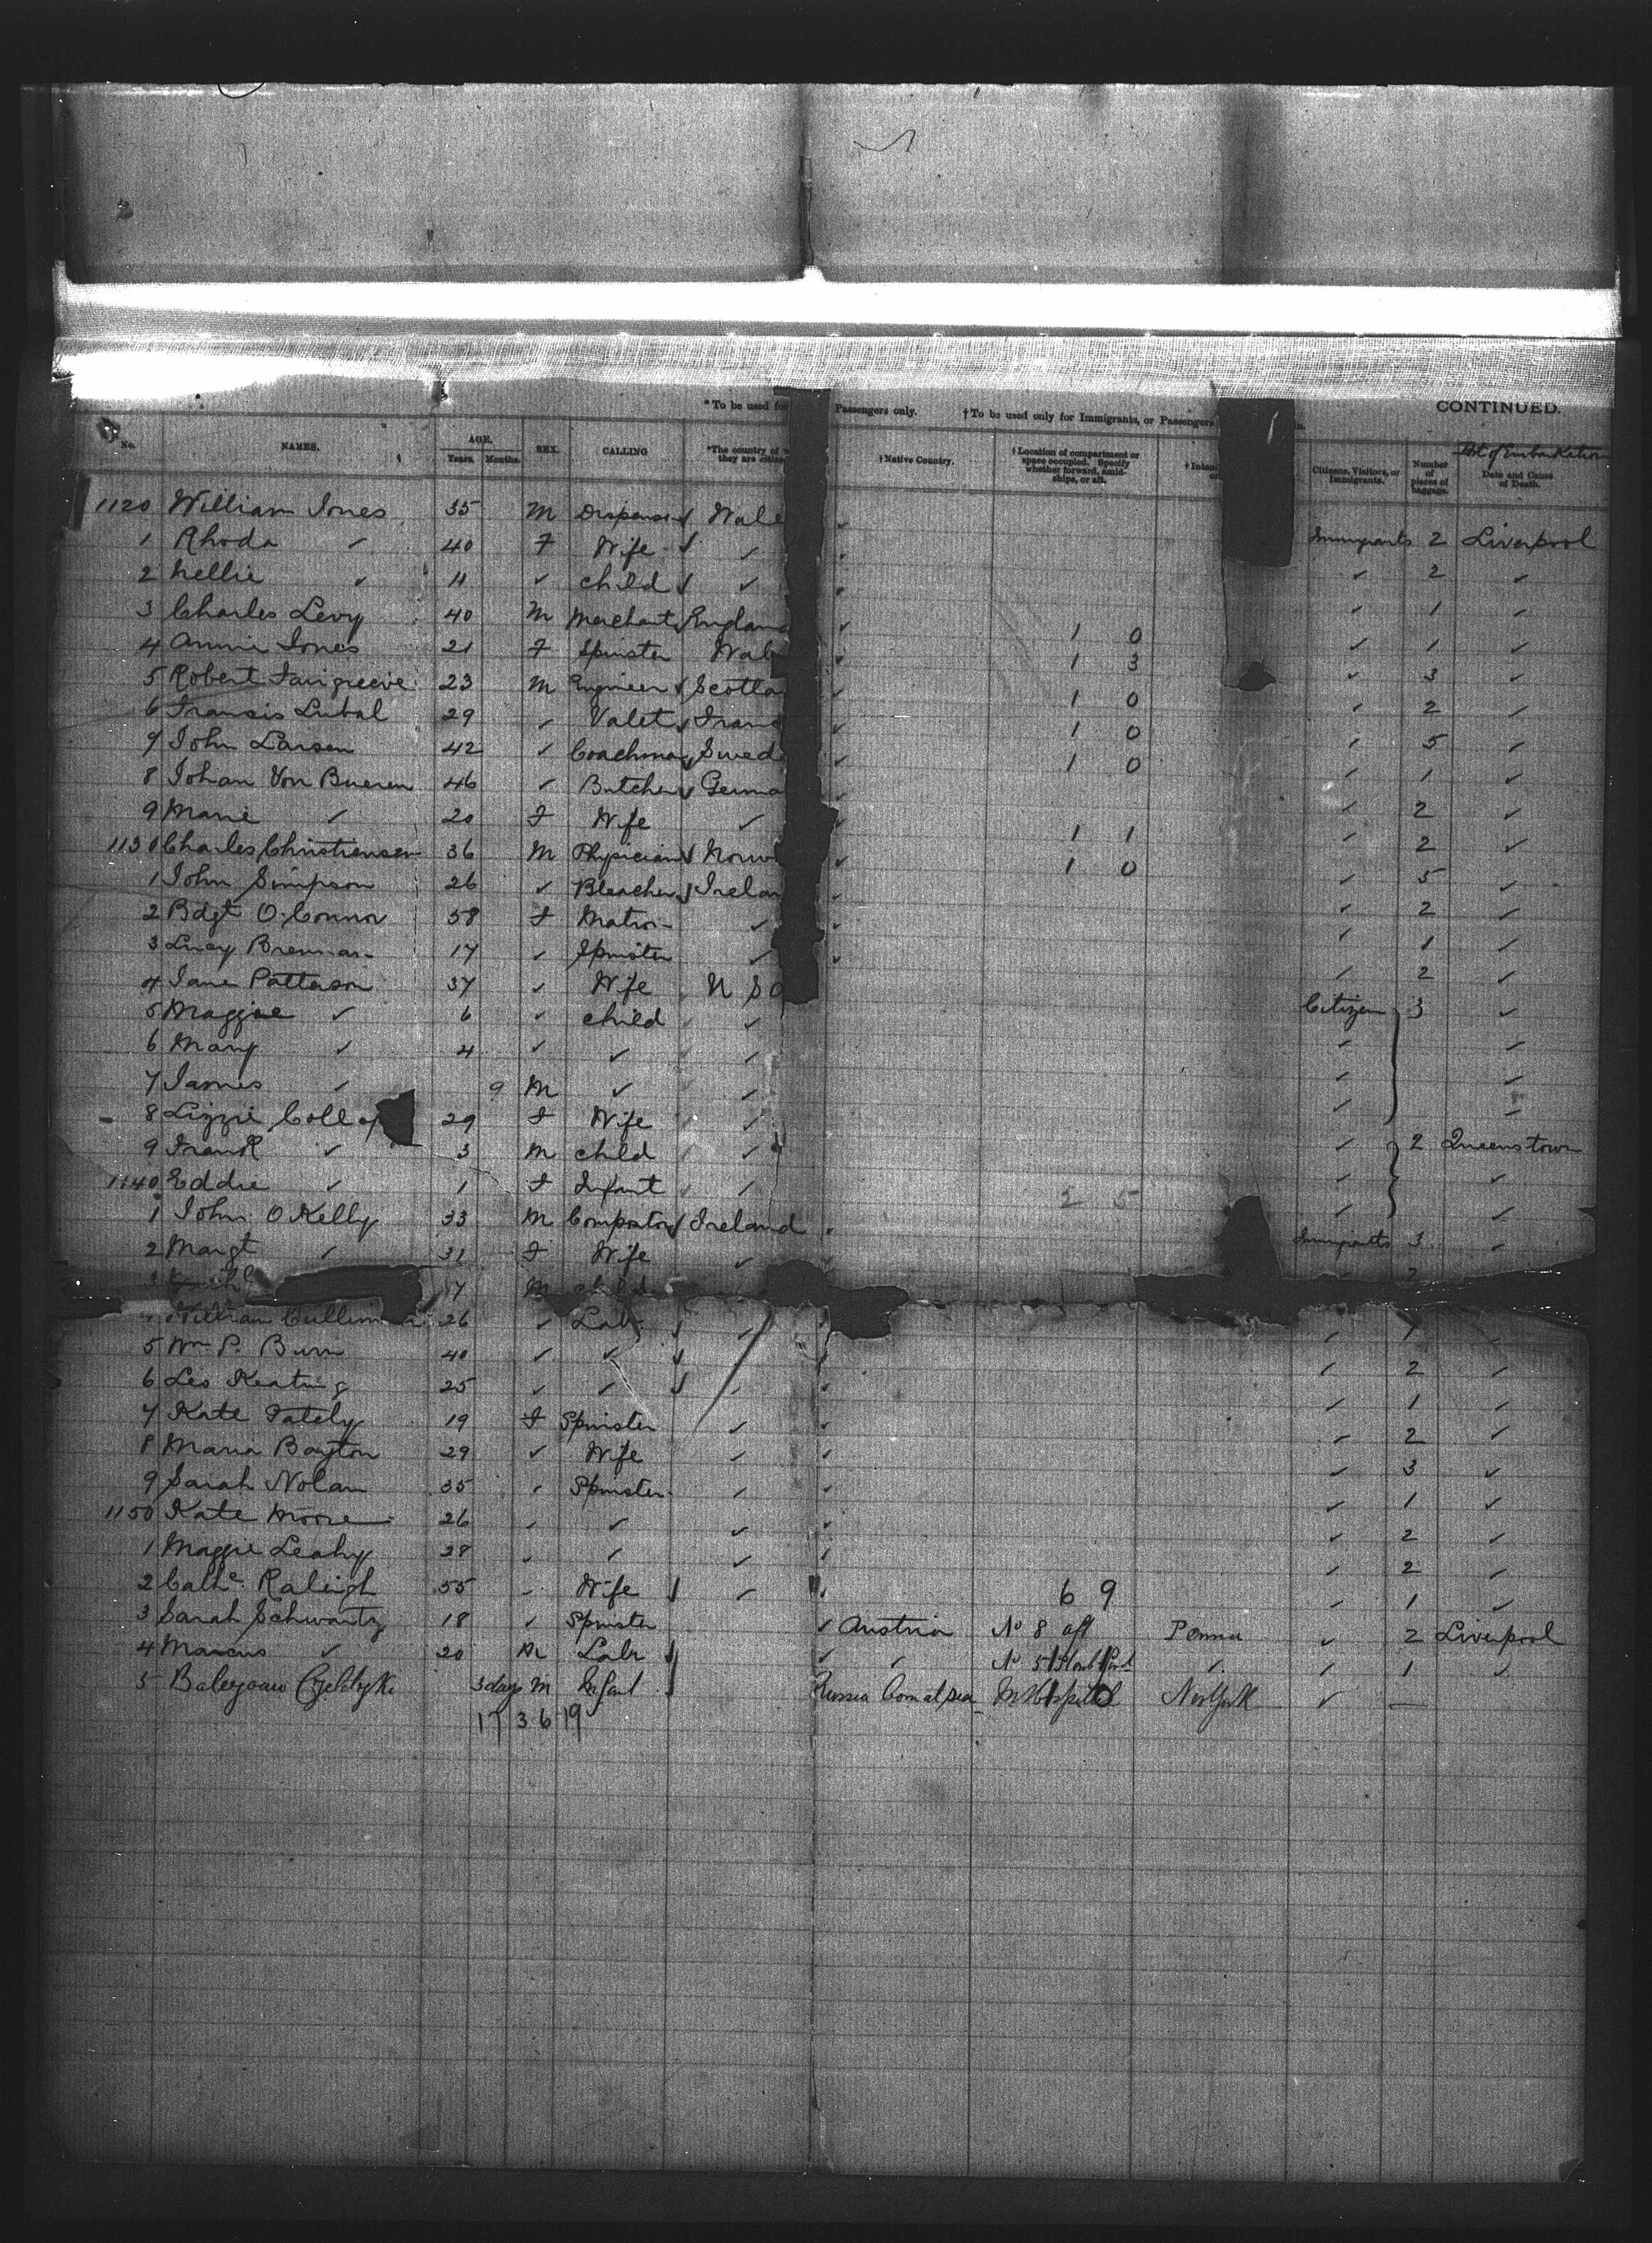 * To be used for Passengers only. † To be used only for Immigrants, or Passengers CONTINUED.
No. NAMES. AGE. Years. Months. SEX. CALLING *The country of they are † Native Country. † Location of compartment or space occupied. Specify whether forward, amidships, or aft. Citizens, Visitors, or Immigrants. Number of pieces of baggage. Port of Embarkation Date and Cause of Death.
1120 William Jones 35 M Dispenser Wale Immigrants 2 Liverpool
1 Rhoda ✓ 40 F Wife ✓ ✓ 2 ✓
2 Nellie ✓ 11 ✓ child ✓ ✓ 1 ✓
3 Charles Levy 40 M Merchant England 1 0 ✓ 1 ✓
4 Annie Jones 21 F Spinster Wale 1 3 ✓ 3 ✓
5 Robert Fairgreeve 23 M Engineer Scotla 1 0 ✓ 2 ✓
6 Francis Lubal 29 ✓ Valet Franc 1 0 ✓ 5 ✓
7 John Larsen 42 ✓ Coachman Swed 1 0 ✓ 1 ✓
8 Johan Von Bueren 46 ✓ Butcher Germa ✓ 2 ✓
9 Marie ✓ 20 F Wife ✓ 1 1 ✓ 2 ✓
1130 Charles Christiensen 36 M Physician Norw 1 0 ✓ 5 ✓
1 John Simpson 26 ✓ Bleacher Irelan ✓ 2 ✓
2 Bdgt O'Connor 58 F Matron ✓ ✓ 1 ✓
3 Lucy Brennan 17 ✓ Spinster ✓ ✓ 2 ✓
4 Jane Patterson 37 ✓ Wife U S Citizen 3 ✓
5 Maggie ✓ 6 ✓ child ✓ ✓ ✓
6 Mary ✓ 4 ✓ ✓ ✓ ✓ ✓
7 James ✓ 9 M ✓ ✓ ✓ ✓
8 Lizzie 29 F Wife ✓ ✓ 2 Queenstown
9 Frank ✓ 3 M child ✓ ✓ ✓
1140 Eddie ✓ 1 F Infant ✓ 2 5 ✓ ✓
1 John O Kelly 33 M Compositor Ireland Immigrants 3 ✓
2 Margt ✓ 31 F Wife ✓ 2
3 M child
4 William 26 ✓ Labr ✓ ✓ 1 ✓
5 Wm P. Burn 40 ✓ ✓ ✓ 2 ✓
6 Leo Keating 25 ✓ ✓ ✓ ✓ 1 ✓
7 Kate 19 F Spinster ✓ ✓ 2 ✓
8 Maria Bayton 29 ✓ Wife ✓ ✓ 3 ✓
9 Sarah Nolan 35 ✓ Spinster ✓ ✓ 1 ✓
1150 Kate Moore 26 ✓ ✓ ✓ ✓ 2 ✓
1 Maggie Leahy 28 ✓ ✓ ✓ ✓ 2 ✓
2 Cathe Raleigh 55 ✓ Wife ✓ 6 9 ✓ 1 ✓
3 Sarah Schwartz 18 ✓ Spinster ✓ Austria No 8 aft Penna ✓ 2 Liverpool
4 Marcus ✓ 20 M Labr ✓ ✓ No 5 ✓ ✓ 1 ✓
5 3 days M Infant Russia Born at Sea Hospital New York ✓ —
17 3 6 19